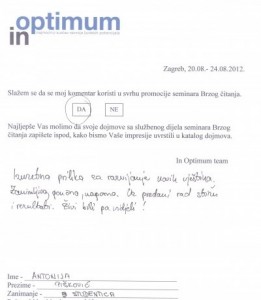 in optimum
Zagreb, 20.08.- 24.08.2012.
Slažem se da se moj komentar koristi u svrhu promocije seminara Brzog čitanja.
DA NE
Najljepše Vas molimo da svoje dojmove sa službenog dijela seminara Brzog
čitanja zapišete ispod, kako bismo Vaše impresije uvrstili u katalog dojmova.
In Optimum team
Izuzetna prilika za razvijanje novih vještina.
Zanimljivo, poučno, naporno. Uz predani rad stižu
i rezultati. Živi bili pa vidjeli!
Ime - ANTONIJA
Prezime -
Zanimanje - STUDENTICA